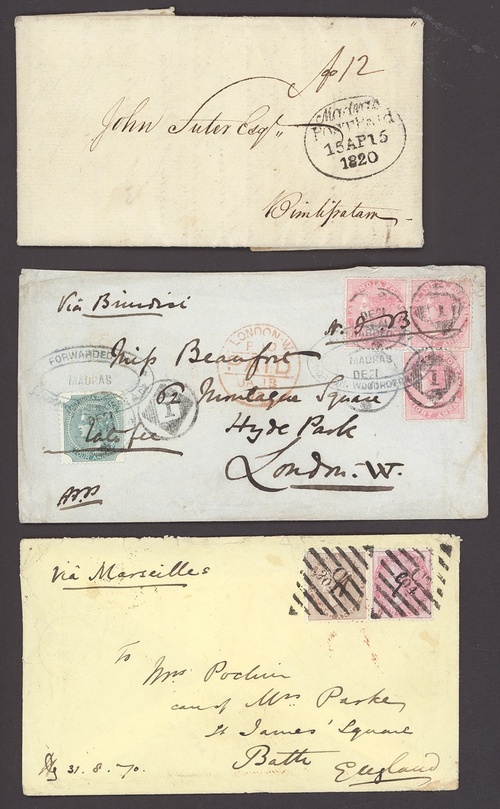 12
John Suter Esqr
Madras
POST Paid
15 AP 15
1820
Bimlipatam
Via Brindisi
LONDON W
PAID
FORWARDED
MADRAS
Miss Beaufort
MADRAS
DE 21
1
1
62 Montague Square
1
Late fee
Hyde Park
London. W.
Via Marseilles
To
Mrs Pochin
care of Mrs Parke
St James' Square
Bath
England
31. 8. 70.